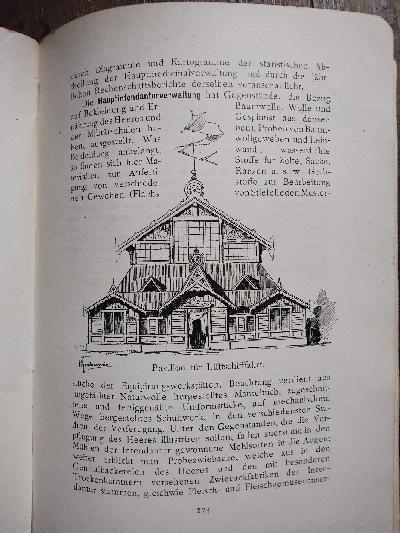 durch Diagramme und Kartogramme der statistischen Ab-
theilung der Hauptmedicinalverwaltung und durch die jähr-
lichen Rechenschaftsberichte derselben veranschaulicht.
Die Hauptintendanturverwaltung hat Gegenstände, die Bezug
auf Bekleidung und Er-
nährung des Heeres und
der Militärschulen ha-
ben, ausgestellt. Was
Bekleidung anbelangt,
so finden sich hier Ma-
terialien zur Anferti-
gung von verschiede-
nen Geweben (Flachs,
Baumwolle, Wolle und
Gespinst aus densel-
ben), Proben von Baum-
wollgeweben und Lein-
wand, wasserdichte
Stoffe für Zelte, Säcke,
Ranzen u. s. w. Gerb-
stoffe zur Bearbeitung
von Stiefelleder, Muster-
Pavillon für Luftschifffahrt.
stücke der Equipirungswerkstätten. Beachtung verdient aus
ungefärbter Naturwolle hergestelltes Manteltuch, zugeschnit-
tene und fertiggenähte Uniformstücke, auf mechanischem
Wege hergestelltes Schuhwerk, in den verschiedensten Sta-
dien der Verfertigung. Unter den Gegenständen, die die Ver-
pflegung des Heeres illustriren sollen, fallen zuerst die in den
Mühlen der Intendantur gewonnene Mehlsorten in die Augen;
weiter erblickt man Probezwiebacke, welche aus den in
Centralbäckereien des Heeres und den mit besonderen
Trockenkammern versehenen Zwiebackfabriken der Inten-
dantur stammen, gleichwie Fleisch- und Fleischgemüseconser-
173